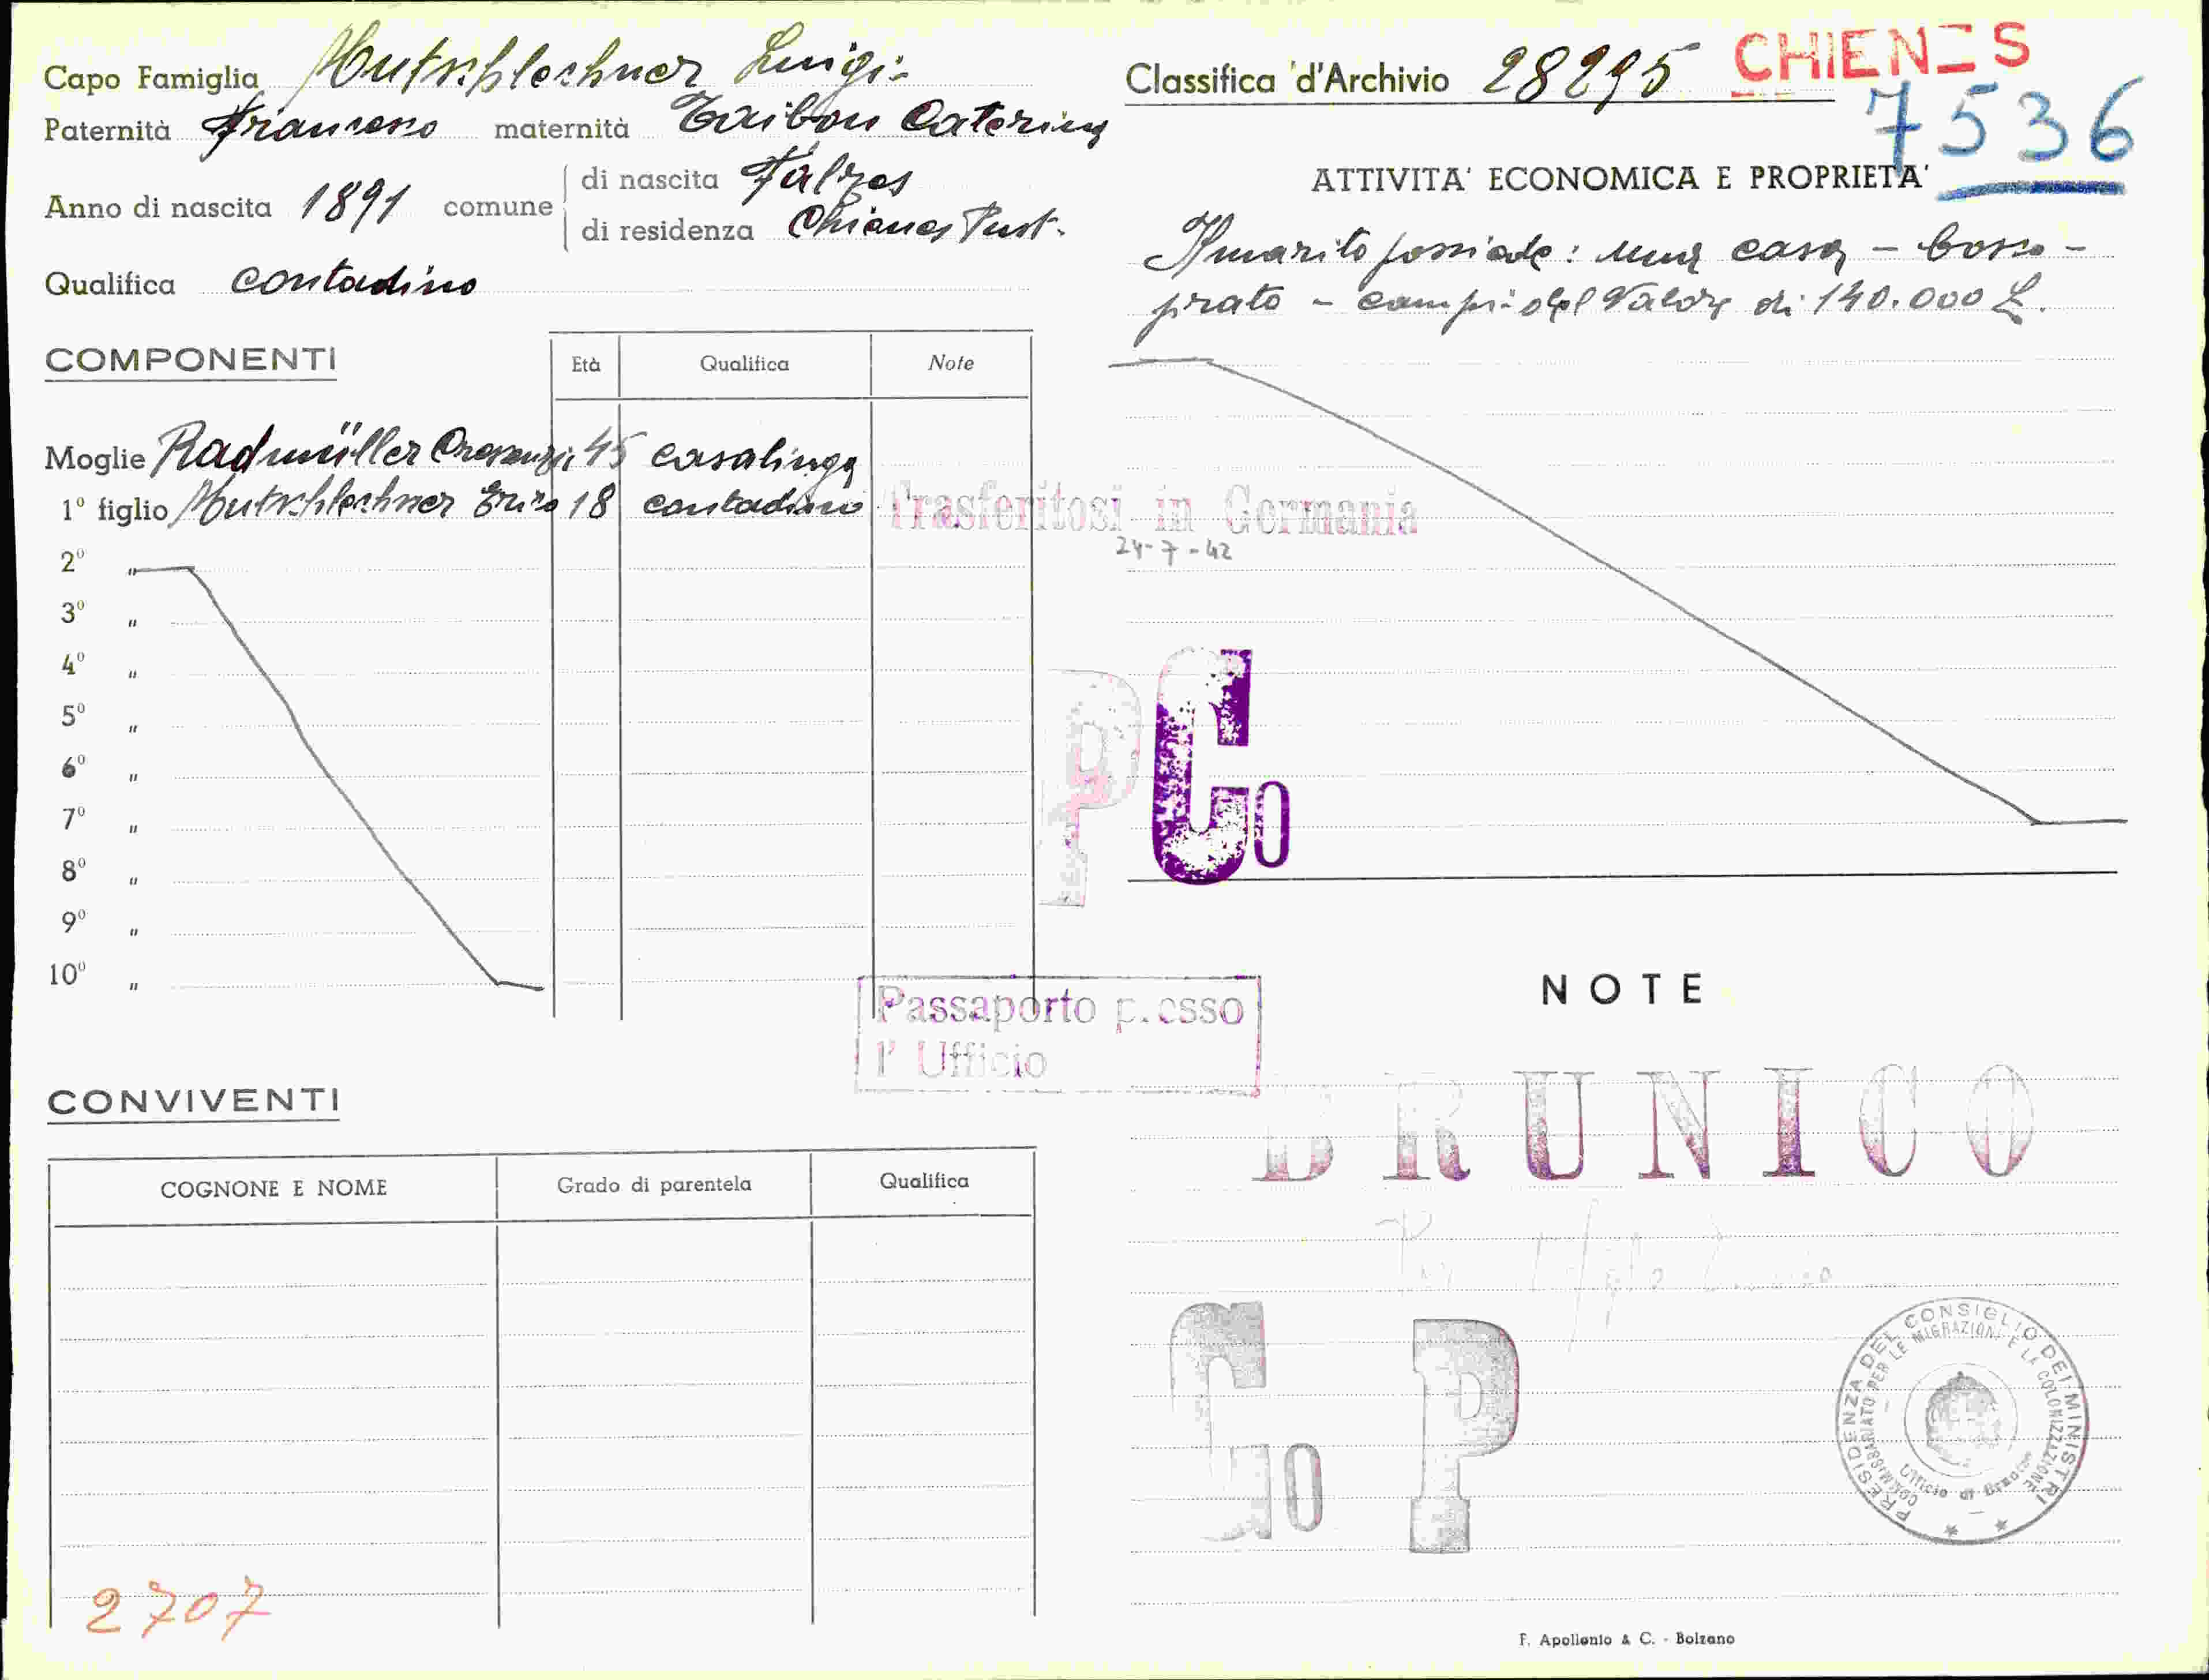 Capo Famiglia Hutschlechner Luigi
Paternità Francesco maternità Taibon Caterina
Anno di nascita 1891 comune di nascita Falzes
di residenza Chienes Pust.
Qualifica contadino
COMPONENTI Età Qualifica Note
Moglie Radmüller Crescenzia 45 casalinga
1º figlio Hutschlechner Enrico 18 contadino Trasferitosi in Germania
24-7-42
2º "
3º "
4º "
5º "
6º "
7º "
8º "
9º "
10º "
P Co
Passaporto presso
l' Ufficio
CONVIVENTI
COGNONE E NOME Grado di parentela Qualifica
2707
Classifica d'Archivio 28295 CHIENES
7536
ATTIVITA' ECONOMICA E PROPRIETA'
Il marito possiede: una casa - bosco -
prato - campi del valore di 140.000 L.
NOTE
BRUNICO
Co P
PRESIDENZA DEL CONSIGLIO DEI MINISTRI
COMMISSARIATO PER LE MIGRAZIONI E LA COLONIZZAZIONE
Ufficio di Brunico
F. Apollonio & C. - Bolzano